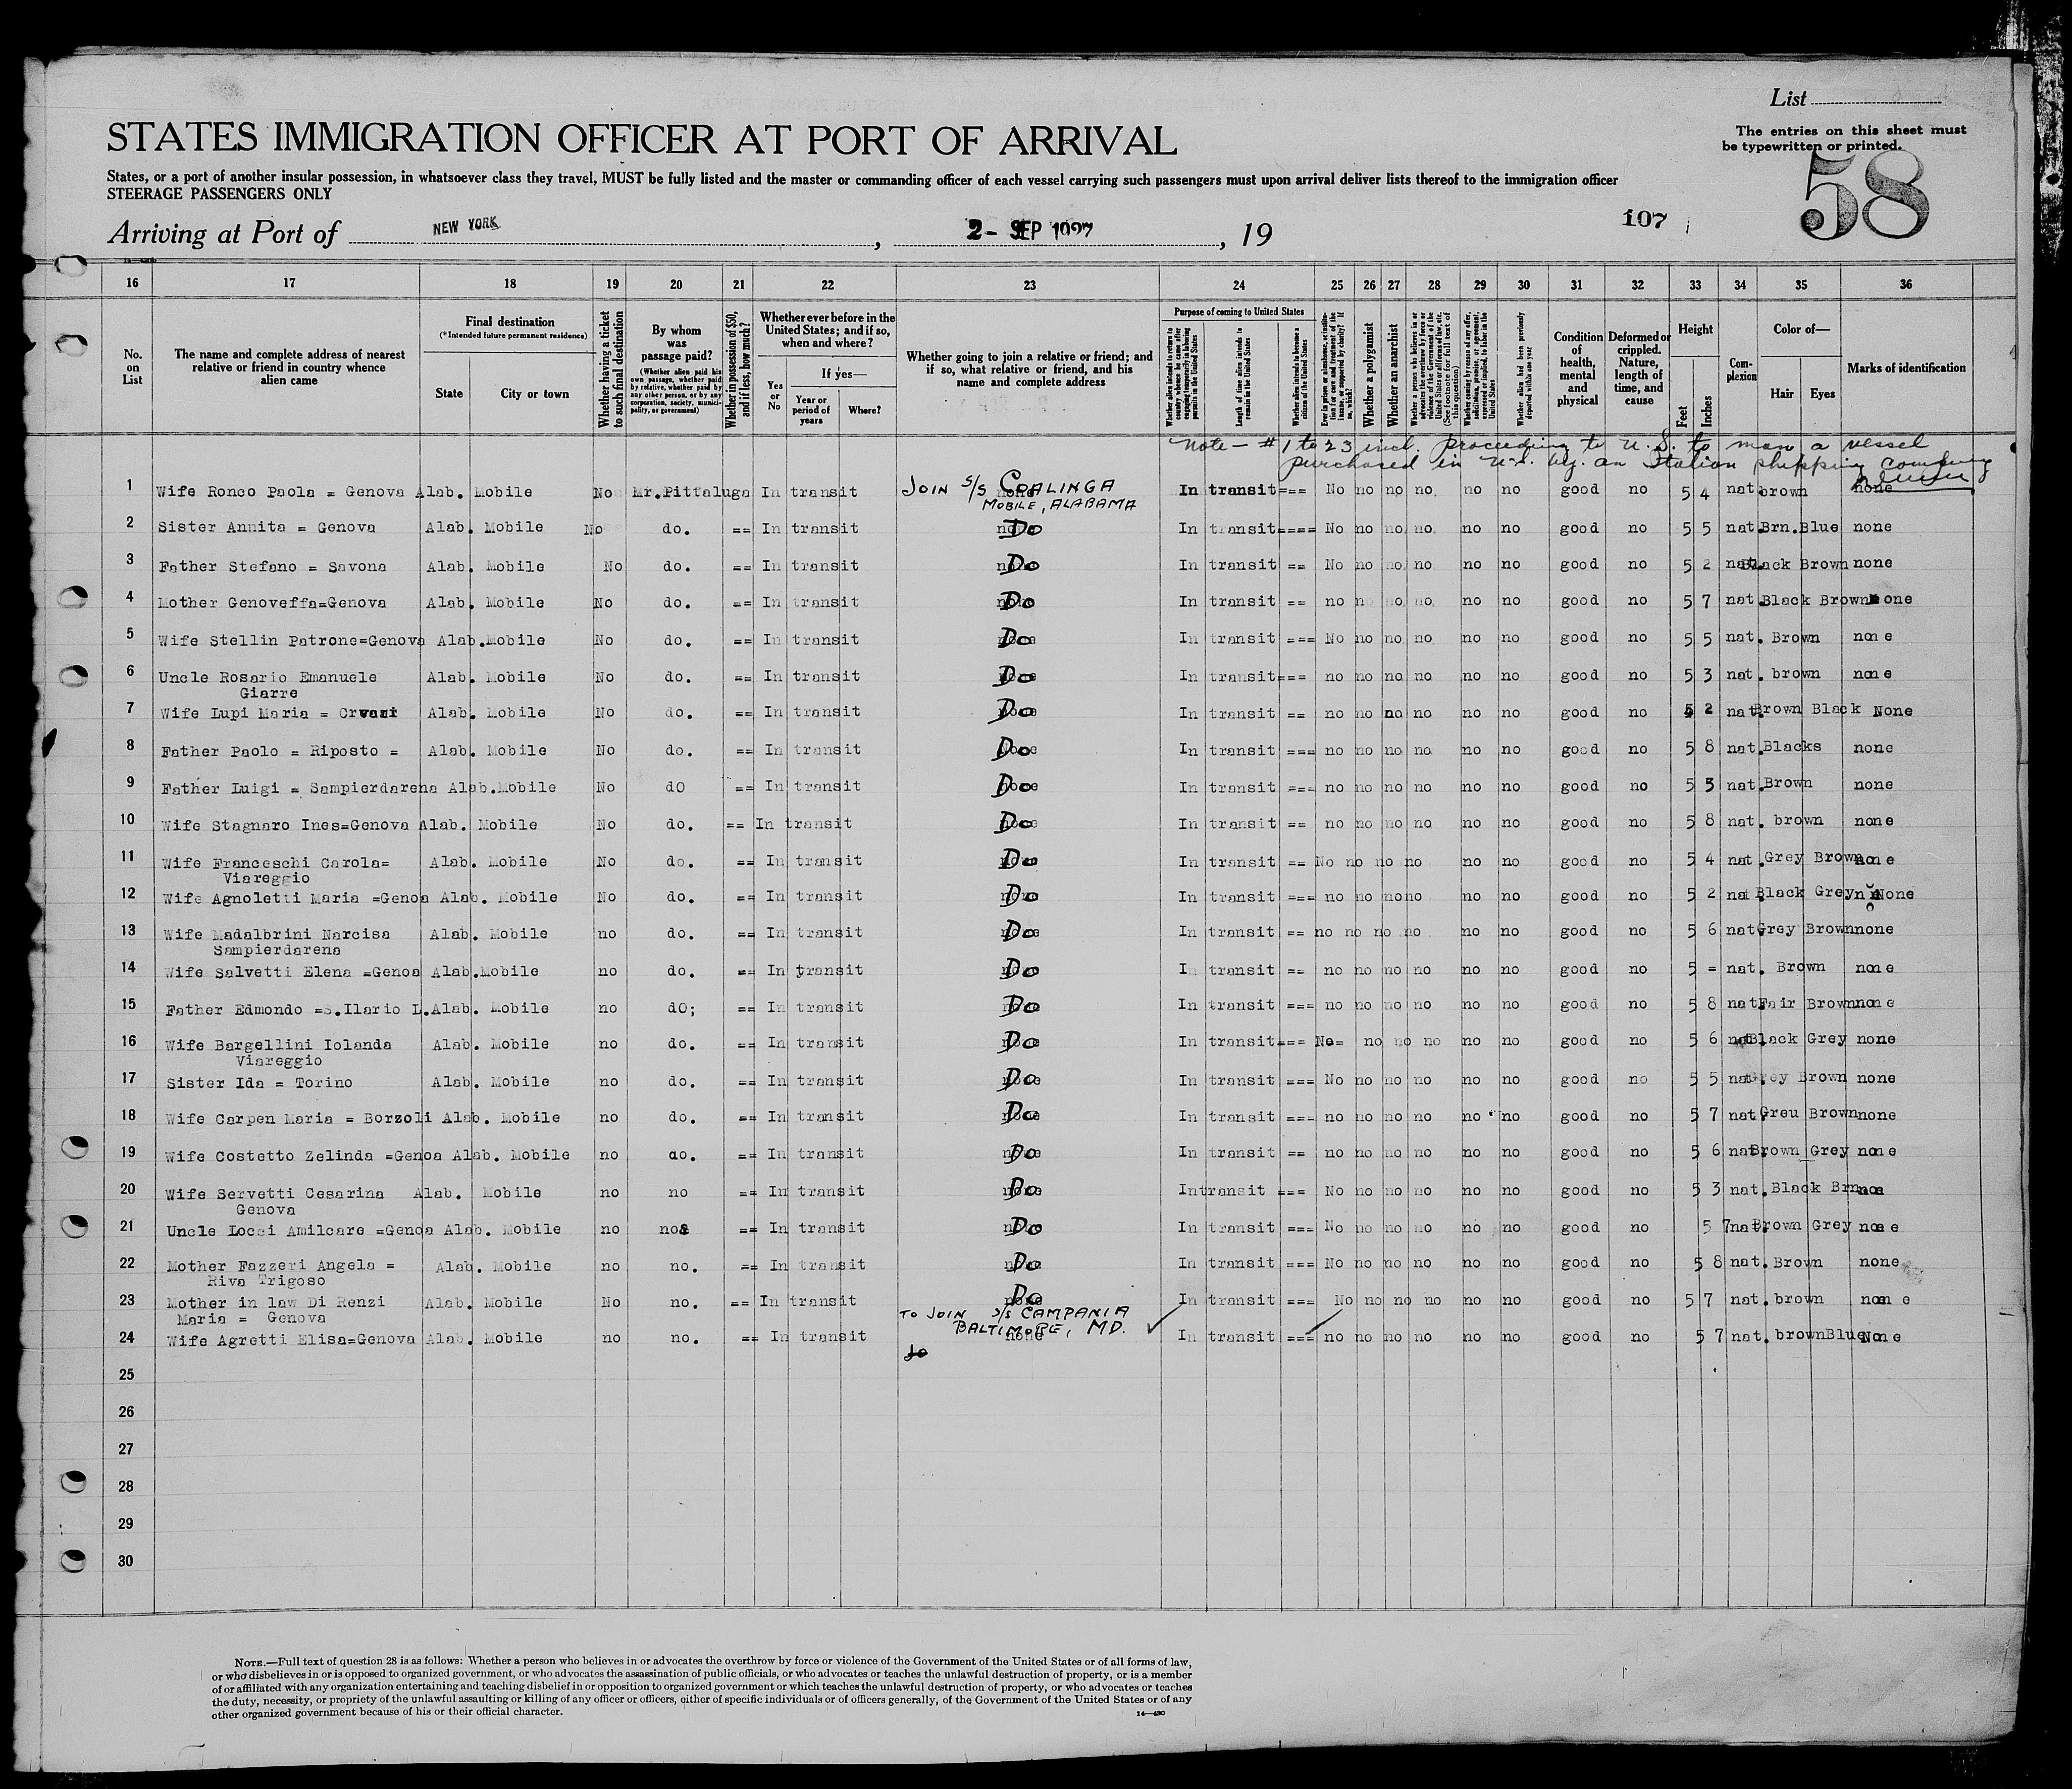 List
The entries on this sheet must
be typewritten or printed.
58
STATES IMMIGRATION OFFICER AT PORT OF ARRIVAL
States, or a port of another insular possession, in whatsoever class they travel, MUST be fully listed and the master or commanding officer of each vessel carrying such passengers must upon arrival deliver lists thereof to the immigration officer
STEERAGE PASSENGERS ONLY
Arriving at Port of NEW YORK , 2- SEP 1927 , 19
107
16 17 18 19 20 21 22 23 24 25 26 27 28 29 30 31 32 33 34 35 36
No. on List
The name and complete address of nearest relative or friend in country whence alien came
Final destination
(*Intended future permanent residence)
State
City or town
Whether having a ticket to such final destination
By whom was passage paid?
(Whether alien paid his own passage, whether paid by relative, whether paid by any other person, or by any corporation, society, municipality, or government)
Whether in possession of $50, and if less, how much?
Whether ever before in the United States; and if so, when and where?
Yes or No
If yes—
Year or period of years
Where?
Whether going to join a relative or friend; and if so, what relative or friend, and his name and complete address
Purpose of coming to United States
Length of time alien intends to remain in the United States
Whether alien intends to become a citizen of the United States
Whether a polygamist
Whether an anarchist
Whether alien had been previously deported within one year
Condition of health, mental and physical
Deformed or crippled. Nature, length of time, and cause
Height
Feet
Inches
Complexion
Color of—
Hair
Eyes
Marks of identification
Note — #1 to 23 incl. proceeding to U.S. to man a vessel
purchased in U.S. by an Italian shipping company
1 Wife Ronco Paola = Genova Alab. Mobile No Mr.Pittaluga In transit JOIN S/S COALINGA MOBILE, ALABAMA none In transit=== No no no no. no no good no 5 4 nat. brown none
2 Sister Annita = Genova Alab. Mobile No do. == In transit none Do In transit==== No no no no. no no good no 5 5 nat.Brn.Blue none
3 Father Stefano = Savona Alab. Mobile No do. == In transit none Do In transit == No no no no. no no good no 5 2 nat.Black Brown none
4 Mother Genoveffa=Genova Alab. Mobile No do. == In transit none Do In transit == no n no no. no no good no 5 7 nat.Black Brown none
5 Wife Stellin Patrone=Genova Alab.Mobile No do. == In transit none Do In transit === No no no no no no good no 5 5 nat. Brown none
6 Uncle Rosario Emanuele Alab. Mobile No do. == In transit none Do In transit=== no no no no no no good no 5 3 nat. brown none
Giarre
7 Wife Lupi Maria = Alab. Mobile No do. == In transit none Do In transit == no no no no no no good no 5 2 nat.Brown Black None
8 Father Paolo = Riposto = Alab. Mobile No do. == In transit none Do In transit === no no no no no no good no 5 8 nat.Blacks none
9 Father Luigi = Sampierdarena Alab.Mobile No dO == In transit none Do In transit === no no no no no no good no 5 3 nat.Brown none
10 Wife Stagnaro Ines=Genova Alab. Mobile No do. == In transit none Do In transit == no no no no no no good no 5 8 nat. brown none
11 Wife Franceschi Carola= Alab. Mobile No do. == In transit none Do In transit == No no no no no no good no 5 4 nat.Grey Brown none
Viareggio
12 Wife Agnoletti Maria =Genoa Alab. Mobile No do. == In transit none Do In transit === no no no no no no good no 5 2 nat Black Grey None
13 Wife Madalbrini Narcisa Alab. Mobile no do. == In transit none Do In transit == no no no no no no good no 5 6 nat Grey Brown none
Sampierdarena
14 Wife Salvetti Elena =Genoa Alab.Mobile no do. == In transit none Do In transit == no no no no no no good no 5 = nat. Brown none
15 Father Edmondo =S.Ilario L.Alab. Mobile no dO; == In transit none Do In transit === no no no no no no good no 5 8 nat Fair Brown none
16 Wife Bargellini Iolanda Alab. Mobile no do. == In transit none Do In transit=== No= no no no no no good no 5 6 nat.Black Grey none
Viareggio
17 Sister Ida = Torino Alab. Mobile no do. == In transit none Do In transit === No no no no no no good no 5 5 nat.Grey Brown none
18 Wife Carpen Maria = Borzoli Alab. Mobile no do. == In transit none Do In transit === no no no no no no good no 5 7 nat.Greu Brown none
19 Wife Costetto Zelinda =Genoa Alab. Mobile no do. == In transit none Do In transit == no no no no no no good no 5 6 nat.Brown Grey none
20 Wife Servetti Cesarina Alab. Mobile no no == In transit none Do Intransit === No no no no no no good no 5 3 nat. Black Brn
Genova
21 Uncle Locci Amilcare =Genoa Alab. Mobile no == In transit none Do In transit === No no no no no no good no 5 7nat.Brown Grey none
22 Mother Fazzeri Angela = Alab. Mobile no no. == In transit none Do In transit === No no no no no no good no 5 8 nat.Brown none
Riva Trigoso
23 Mother in law Di Renzi Alab. Mobile No no. == In transit none Do In transit === No no no no no no good no 5 7 nat. brown none
Maria = Genova
24 Wife Agretti Elisa=Genova Alab. Mobile no no. == In transit TO JOIN S/S CAMPANIA BALTIMORE, MD. none In transit === no no no no no no good no 5 7 nat. brown Blue None
25
26
27
28
29
30
NOTE.—Full text of question 28 is as follows: Whether a person who believes in or advocates the overthrow by force or violence of the Government of the United States or of all forms of law,
or who disbelieves in or is opposed to organized government, or who advocates the assassination of public officials, or who advocates or teaches the unlawful destruction of property, or is a member
of or affiliated with any organization entertaining and teaching disbelief in or opposition to organized government or which teaches the unlawful destruction of property, or who advocates or teaches
the duty, necessity, or propriety of the unlawful assaulting or killing of any officer or officers, either of specific individuals or of officers generally, of the Government of the United States or of any
other organized government because of his or their official character.
14—430